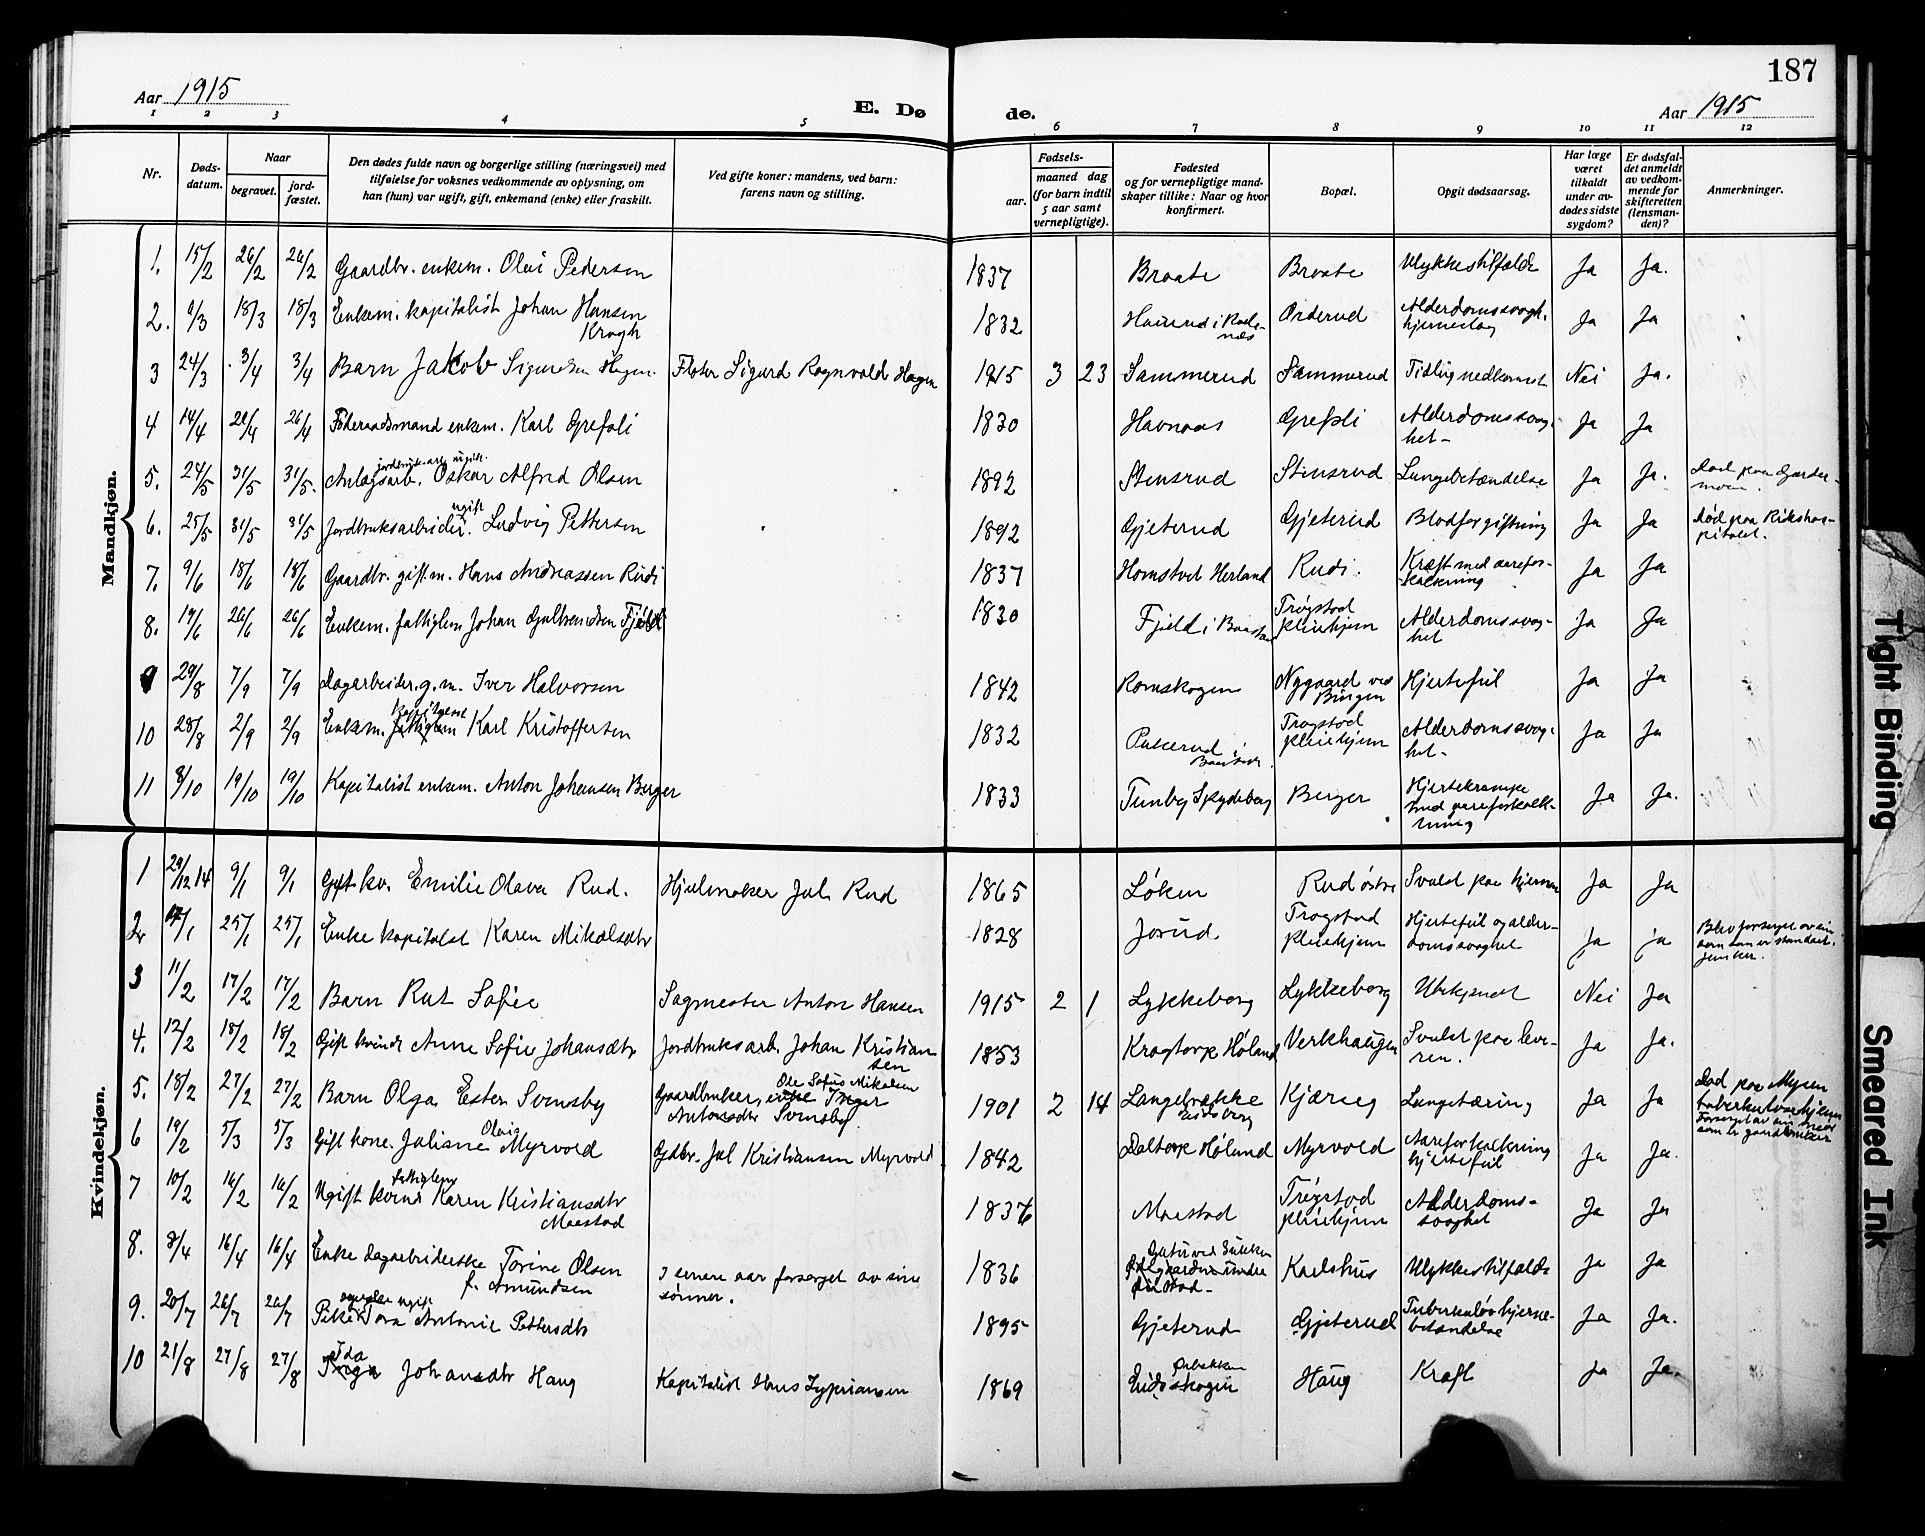 187
Aar 1915
E. Dø de.
Aar 1915
1 2 3 4 5 6 7 8 9 10 11 12
Nr.
Døds-
datum.
Naar
begravet.
jord-
fæstet.
Den dødes fulde navn og borgerlige stilling (næringsvei) med
tilføielse for voksnes vedkommende av oplysning, om
han (hun) var ugift, gift, enkemand (enke) eller fraskilt.
Ved gifte koner: mandens, ved barn:
farens navn og stilling.
Fødsels-
aar. maaned dag
(for barn indtil
5 aar samt
vernepligtige).
Fødested
og for vernepligtige mand-
skaper tillike: Naar og hvor
konfirmert.
Bopæl.
Opgit dødsaarsag.
Har læge
været
tilkaldt
under av-
dødes sidste
sygdom?
Er dødsfal-
det anmeldt
av vedkom-
mende for
skifteretten
(lensman-
den)?
Anmerkninger.
Mandkjøn.
1. 15/2 26/2 26/2 Gaardbr. enkem. Olai Pedersen 1837 Braate Braate Ulykkestilfælde Ja Ja.
2. 6/3 18/3 18/3 Enkem. kapitalist Johan Hansen 1832 Orderud Alderdomssvagh. Ja Ja
Krogh hjerneslag
3 24/3 3/4 3/4 Barn Jakob Sigurdsen Hagen Fløter Sigurd Ragnvald Hagen 1915 3 23 Sammerud Sammerud Tidlig nedkomst Nei Ja.
4 14/4 26/4 Føderaadsmand enkem. Karl Grefsli 1830 Havnaas Grefsli Alderdomssvag- Ja Ja
het
jordbruksarb. ugift
5. 24/5 31/5 31/5. Anlægsarb. Oskar Alfred Olsen 1892 Stensrud Stensrud Lungebetændelse Ja Ja. Død paa Garder-
moen.
ugift
6. 25/5 31/5 31/5 Jordbruksarbeider. Ludvig Pettersen 1892 Gjeterud Gjeterud Blodforgiftning Ja Ja Død paa Rikshos-
pitalet.
7. 9/6 18/6 18/6 Gaardbr. gift m. Hans Andreassen Rudi 1837 Homstvet Herland Rudi. Kræft med aarefor- Ja Ja
kalkning
8. 19/6 26/6 26/6 Enkem. fattiglem Johan Gulbrandsen Fjeld 1830 Fjeld i Baastad Trøgstad Alderdomssvag- Ja Ja
pleiehjem het
9 29/8 7/9 7/9 Dagarbeider. g. m. Iver Halvorsen 1842 Romskogen Nygaard ved Hjertefeil Ja Ja
Bingen
Kapitalist
10 28/8 2/9 2/9 Enkem. fattiglem Karl Kristoffersen 1832 i Trøgstad Alderdomssvag- Ja Ja
Baastad. pleiehjem het
11 8/10 19/10 19/10 Kapitalist enkem. Anton Johansen Berger 1833 Tunby Skydeberg Berger Hjertekrampe Ja Ja.
med aareforkalk-
ning
Kvindekjøn.
1 29/12 14 9/1 9/1 Gift kv. Emilie Olava Rud. Hjulmaker Jul. Rud 1865 Løken Rud østre Svulst paa hjernen Ja Ja
2. 25/1 25/1 Enke kapitalist Karen Mikalsdtr 1828 Jorud. Trøgstad Hjertefeil og alder- Ja ja Blev forsørget av sin
pleiehjem domssvaghet søn som er standart-
junker.
3 11/2 17/2 17/2 Barn Rut Sofie Sagmester Anton Hansen 1915 2 1 Lykkeborg Lykkeborg Ubekjendt Nei Ja
4. 12/2 18/2 18/2 Gift kvinde Anne Sofie Johansdtr Jordbruksarb. Johan Kristian 1853 Kragtorp Høland Verkhaugen Svulst paa leve- Ja Ja.
sen ren.
Ole Sofus Mikalsen
5. 18/2 27/2 27/2 Barn Olga Ester Svensby Gaardbruker, enke Inger 1901 2 14 Langebrække Kjærnes Lungetæring Ja Ja Død paa Mysen
Antonsdtr Svensby Eidsberg tuberkulosehjem
Forsørget av sin mor
som er gaardbruker
Olava
6 19/2 5/3 5/3 Gift kone. Julisne Myrvold Gdbr. Jul Kristiansen Myrvold 1842 Daltorp Høland Myrvold Aareforkalkning Ja Ja.
hjertefeil
fattiglem
7 10/2 16/2 16/2 Ugift kvinde Karen Kristiansdtr 1837 Maestad Trøgstad Alderdoms- Ja Ja
Maestad pleiehjem svaghet
8. 8/4 16/4 16/4 Enke dagarbeiderske Torine Olsen I senere aar forsørget av sine 1836 Karlshus Ulykkestilfælde Ja Ja
f. Amundsen sønner.
ugift
9. 20/7 26/7 26/7 Pike Tora Antonie Pettersdtr 1895 Gjeterud Gjeterud Tuberkuløs hjerne- Ja Ja.
betændelse
Ida
10 21/8 27/8 27/8 Inga Johansdtr Haug Kapitalist Hans Zyprianson 1869 Eidsskogen Haug Kræft Ja Ja.
Tight Binding
Smeared Ink